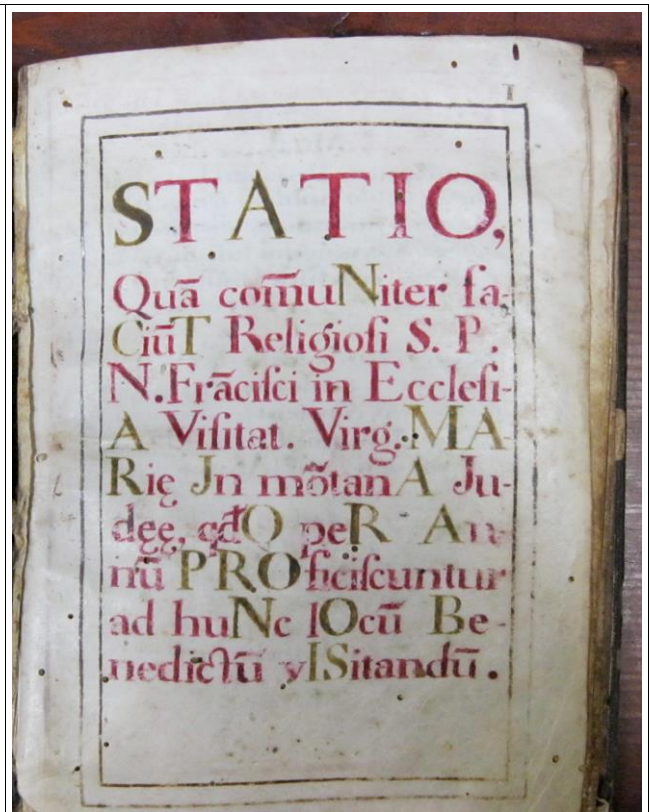 1
STATIO,
Quā com̄uNiter ſa-
CiūT Religioſi S. P.
N. Frāciſci in Eccleſi-
A Viſitat. Virg. MA-
Rię Jn mōtanA Ju-
dęę, qđO peR An-
nū PROficiſcuntur
ad huNc lOcū Be-
nedictū vISitandū.